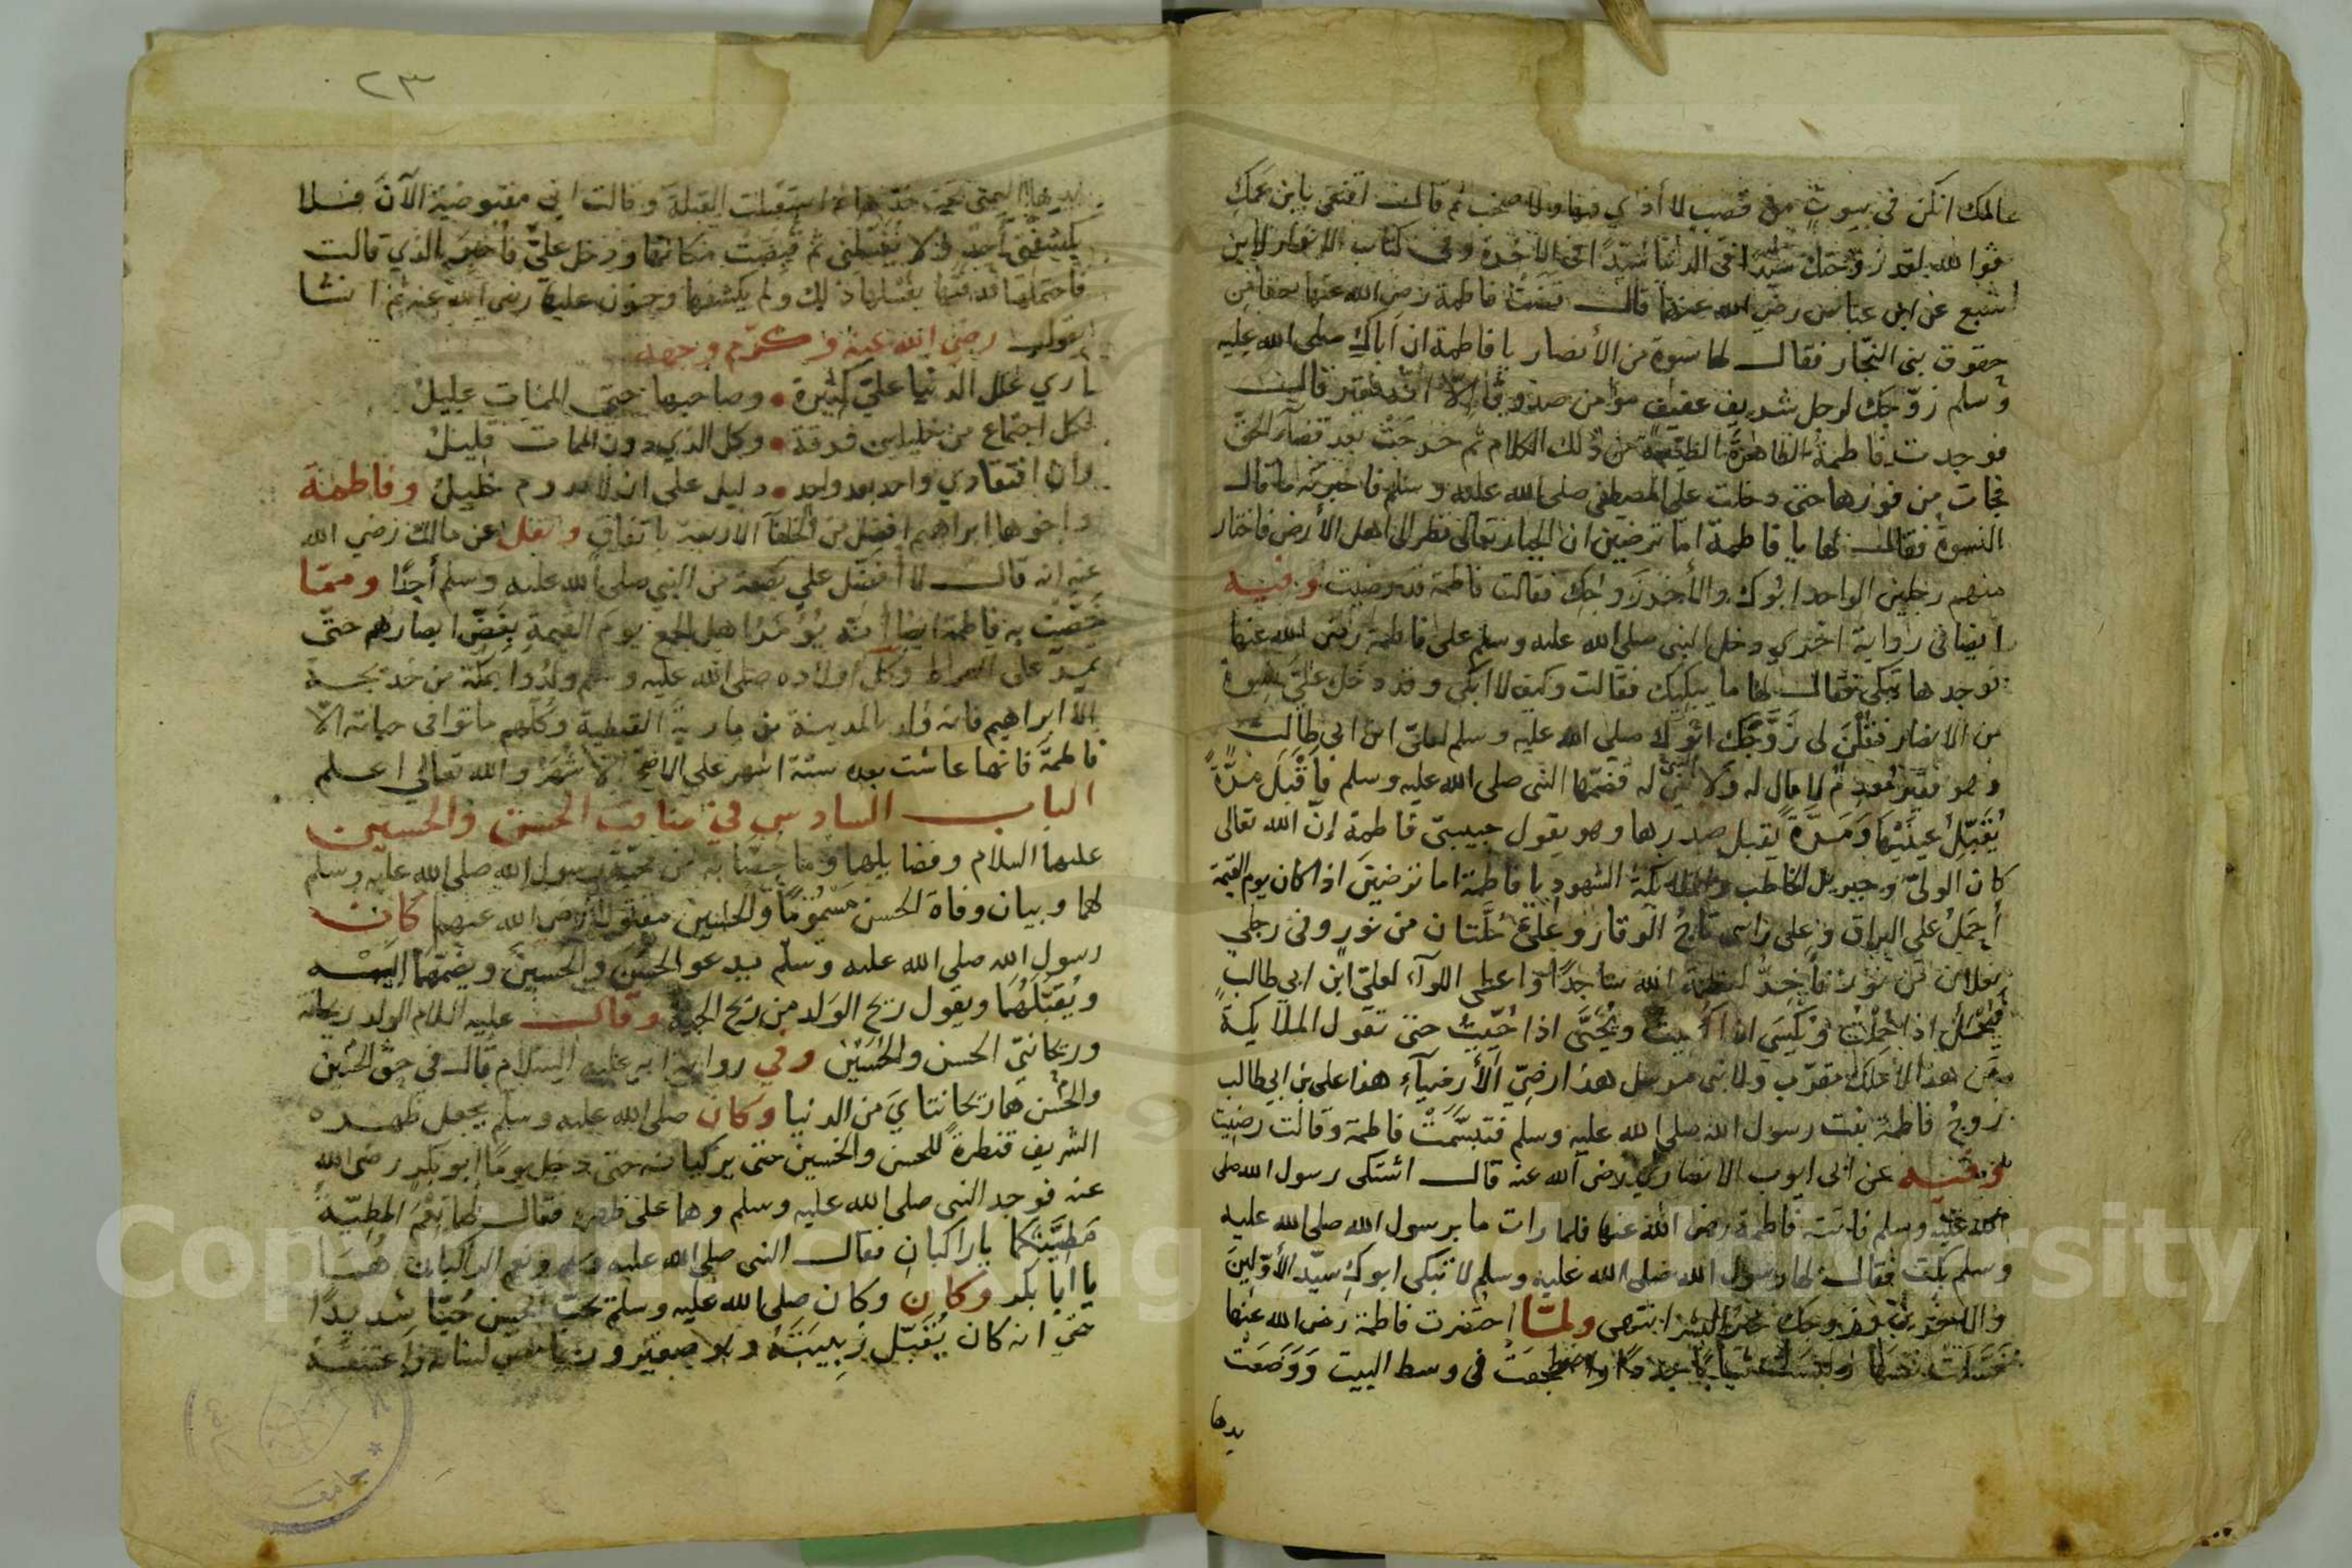 عالمك انكن في بيوت من قصب لا أذي فيها ولا صخب ثم قال اقنعي بابن عمك
فوالله لقد زوجتك سيدا في الدنيا سيدا في الآخرة وفي كتاب لابن
سبع عن ابن عباس رضي الله عنهما قال فاطمة رضي الله عنها
حقوق بني النجار فقال لها نسوة من الأنصار يا فاطمة ان اباك صلى الله عليه
وسلم زوّجك لرجل شريف عفيف مؤمن صدوق إلا انه فقير قالت
فوجدت فاطمة الطاهرة من ذلك الكلام ثم خرجت بعد قضآء الحق
فجات من فورها حتى دخلت على المصطفى صلى الله عليه وسلم فاخبرته ما قال
النسوة فقال لها يا فاطمة اما ترضين ان الجبار تعالى نظر الى اهل الأرض فاختار
منهم رجلين الواحد ابوك والأخر زوجك فقالت فاطمة قد رضيت وفيه
ايضا في رواية اخري دخل النبي صلى الله عليه وسلم على فاطمة رضي الله عنها
فوجدها تبكي فقال لها ما يبكيك فقالت وكيف لا ابكي وقد دخل عليّ نسوة
من الانصار فقلن لي زَوَّجَك ابوك صلى الله عليه وسلم لعلي ابن ابي طالب
وهو فقير مُعدِم لا مال له ولا شي له فضمّها النبي صلى الله عليه وسلم فأقبَلَ مرّةً
يُقَبِّل عينَيْها وَمَرَّةً يقبل صدرها وهو يقول حبيبتي فاطمة إنّ الله تعالى
كان الوليّ وجبريل الخاطب والملايكة الشهود يا فاطمة اما ترضين اذا كان يوم القيمة
أُحمَلُ على البراق وعلى راسي تاج الوقار وعليّ حُلَّتان من نور وفي رجلي
نعلان من نور فأخِرُّ لعظمة الله ساجدا واعطى اللوآء لعلي ابن ابي طالب
فيُحمَل اذا حُمِلْتُ ويُكسَى اذا كُسيت ويُحَيَّى اذا حُيّيتُ حتى تقول الملايكة
مَن هذا الا ملك مقرّب ولا نبي مرسل هذا رضيّ الأرضيآءِ هذا علي بن ابي طالب
زوجُ فاطمة بنت رسول الله صلى الله عليه وسلم فتبسَّمَتْ فاطمة وقالت رضيت
وفيه عن ابي ايوب الانصاري رضي الله عنه قال اشتكى رسول الله صلى
الله عليه وسلم فاتته فاطمة رضي الله عنها فلما رات ما برسول الله صلى الله عليه
وسلم بكت فقال لها رسول الله صلى الله عليه وسلم لا تبكي ابوكِ سيّد الأوّلين
والآخرين وزوجك خير البشر انتهى ولمّا احتضرت فاطمة رضي الله عنها
غسّلت نفسها ولبست ثيابا جددا واضطجعَتْ في وسط البيت وَوَضَعَتْ
يدها
٢٣
يدها اليمنى تحت خدّها ثم استقبلت القبلة وقالت اني مقبوضة الآنَ فلا
يكشفني أحد ولا يغسلني ثم قُبِضَتْ مكانها ودخل عليّ فأُخبِرَ بالذي قالت
فاحتملها فدفنها بغسلها ذلك ولم يكشفها وحزن عليها رضي الله عنه ثم انشا
يقول رضي الله عنه وكرّم وجهه
أري علل الدنيا عليّ كثيرة • وصاحبها حتى الممات عليلُ
لكل اجتماع من خليلين فرقة • وكل الذي دون الممات قليلُ
وان افتقادي واحد بعد واحد • دليل على ان لا يدوم خليلُ وفاطمة
واخوها ابراهيم افضل من الخلفآ الاربعة باتفاق ونقل عن مالك رضي الله
عنه انه قال لا أفضّل على بضعة من النبي صلى الله عليه وسلم أحدًا وممّا
خُصَّتْ به فاطمة ايضا أنّه يُؤمَرُ اهل الجمع يوم القيمة بغضّ ابصارهم حتى
تمرّ على الصراط وكل اولاده صلى الله عليه وسلم ولدُوا بمكّة من خديجة
الا ابراهيم فانه ولد بالمدينة من مارية القبطية وكلهم ماتوا في حياته الّا
فاطمة فانها عاشت بعده ستة اشهر على الاشهر والله تعالى اعلم
الباب السادس في مناقب الحسن والحسين
عليهما السلام وفضايلهما وما خصّا به من محبة رسول الله صلى الله عليه وسلم
لهما وبيان وفاة الحسن مَسْمُوْمًا والحسين مقتولا رضي الله عنهما كان
رسول الله صلى الله عليه وسلم يدعو الحسن والحسينَ ويضمّهما اليه
ويُقَبّلهُما ويقول ريح الوَلد من ريح الجنة وقال عليه السلام الولد ريحانة
وريحانتيّ الحسن والحُسَيْن وفي رواية عليه السلام قال في حق الحسين
والحُسَن هما ريحانتايَ من الدنيا وكان صلى الله عليه وسلم يجعل ظهره
الشريف قنطرةً للحسن والحسين حتى يركبانه حتى دخل يومًا ابو بكر رضي الله
عنه فوجد النبي صلى الله عليه وسلم وهما على ظهره فقال لهما نِعْمَ المطيّة
مَطِيَّتكما يا راكبان فقال النبي صلى الله عليه وسلم ونعم الراكبان هُمَا
يا ابا بكر وكان وكان صلى الله عليه وسلم يحب الحسين حُبّا شديدًا
حتى انه كان يُقَبّل زبيبَتَهُ وهو صغير لسانه
جامعة
Copyright © King Saud University